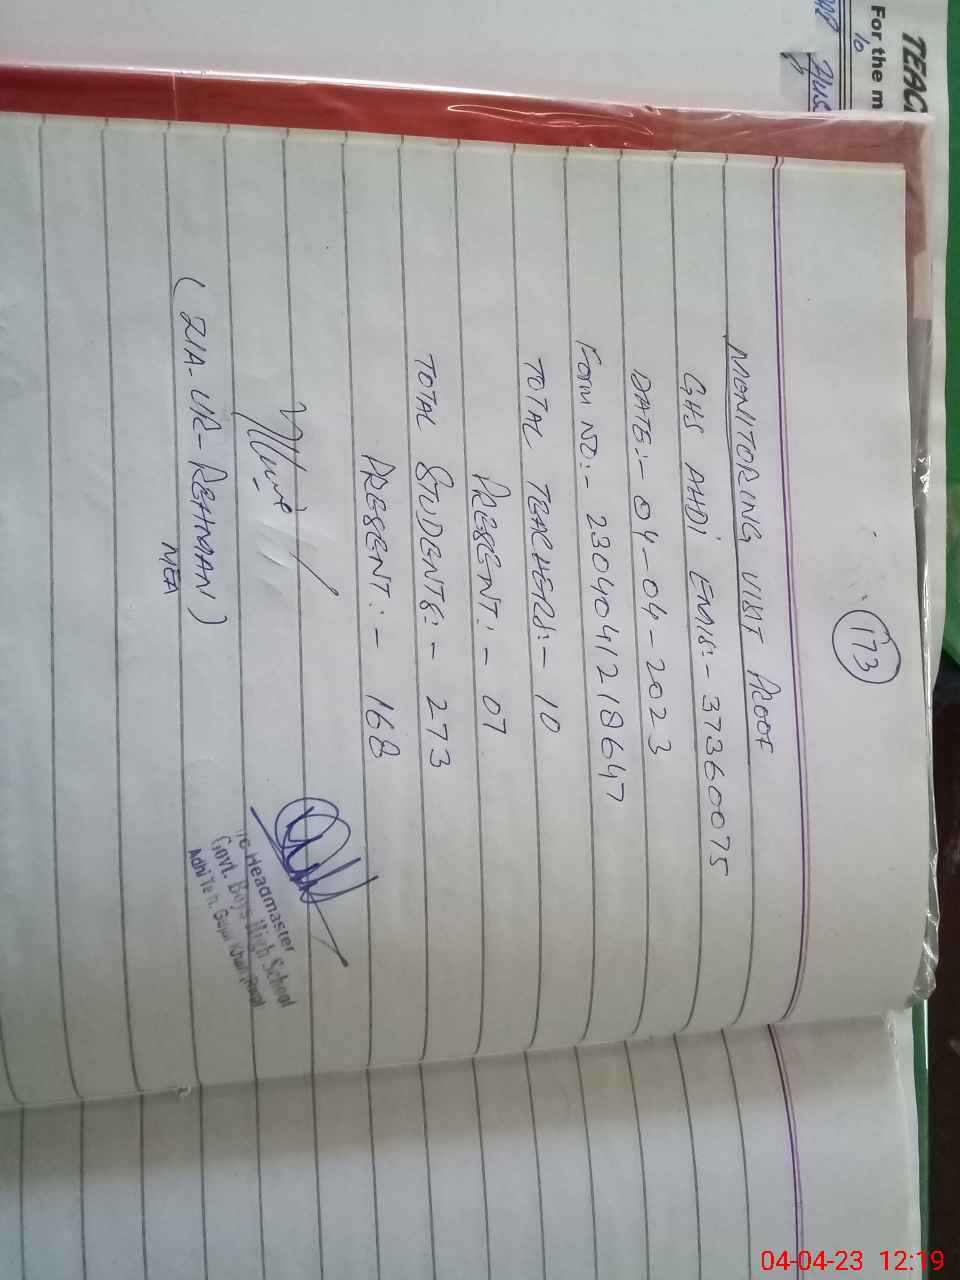 TEAC
For the m
10
173
MONITORING VISIT PROOF
GHS AHDI EMIS:- 37360075
DATE:- 04-04-2023
FORM NO:- 2304041218647
TOTAL TEACHERS:- 10
PRESENT:- 07
TOTAL STUDENTS:- 273
PRESENT:- 168
(ZIA-UR-REHMAN)
MEA
I/C Headmaster
Govt. Boys High School
Adhi Teh. Gujar Khan (Rwp)
04-04-23 12:19